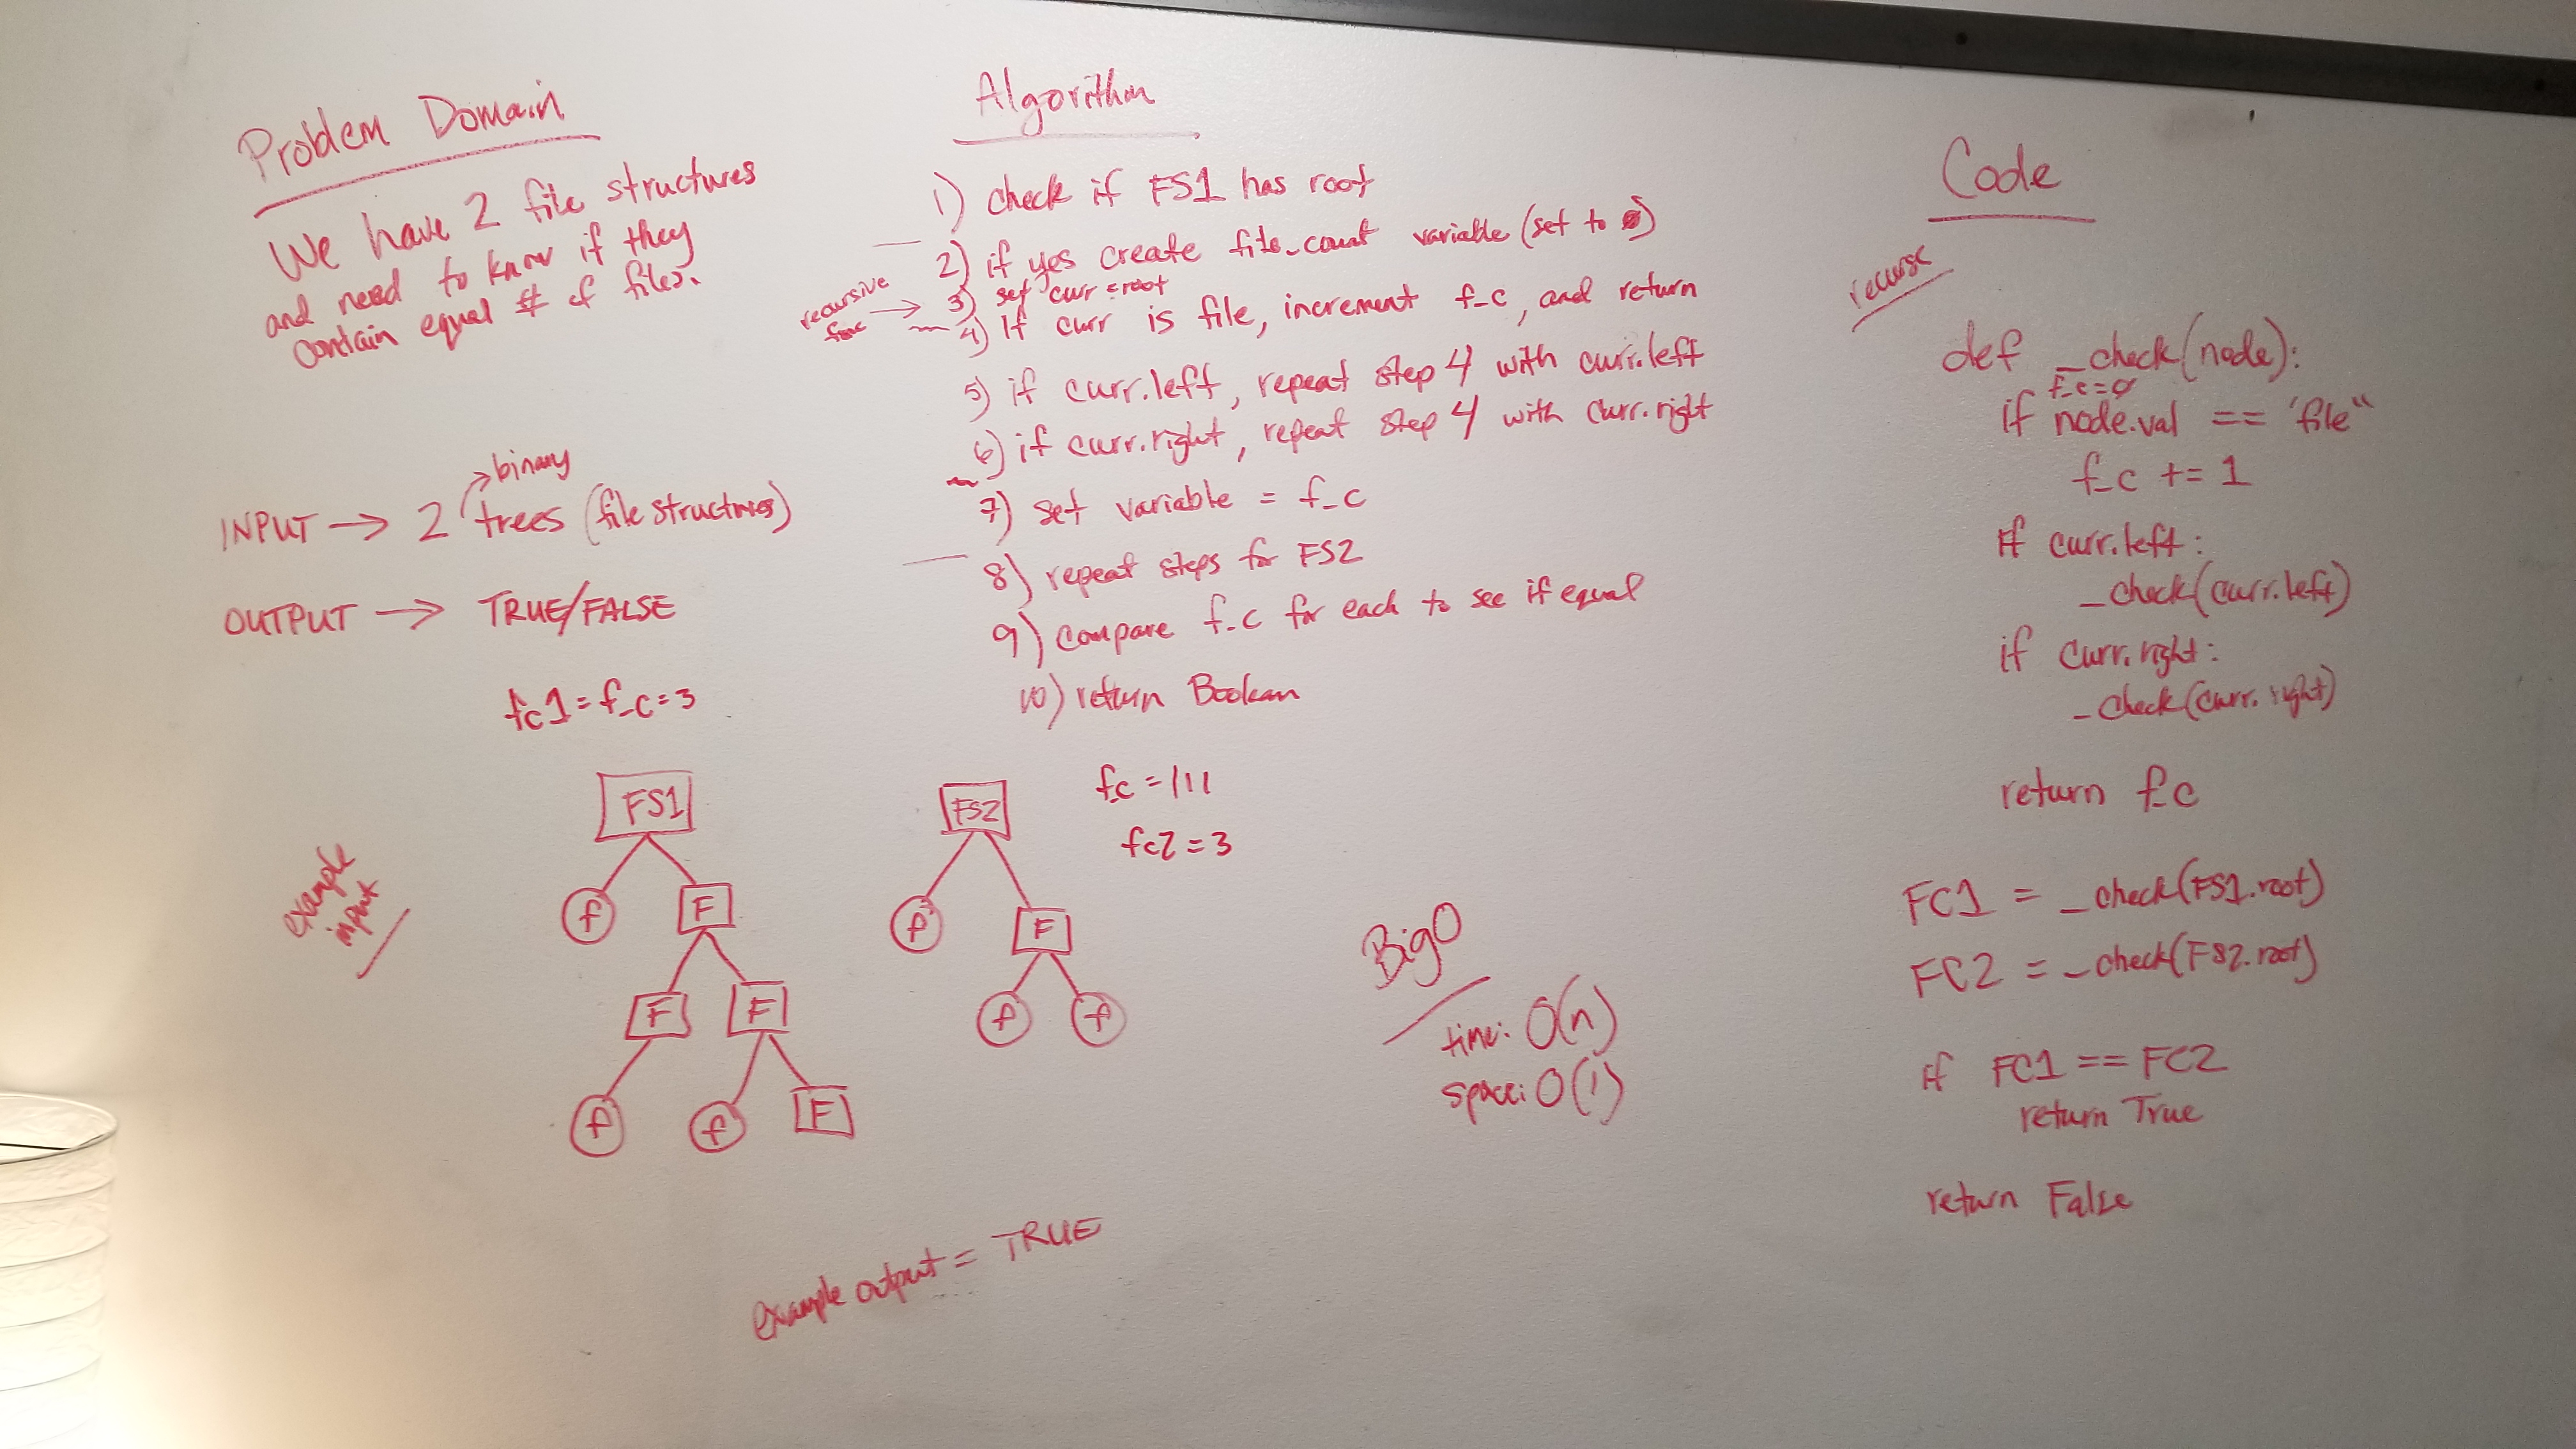 Problem Domain
We have 2 file structures
and need to know if they
contain equal # of files.
INPUT → 2 trees (file structures)
binary
OUTPUT → TRUE/FALSE
fc1 = f_c = 3
example
input
FS1
f
F
F
F
f
f
F
FS2
f
F
f
f
f_c = 111
fc2 = 3
example output = TRUE
Algorithm
1) check if FS1 has root
2) if yes create file_count variable (set to 0)
recursive
func →
3) set curr = root
4) If curr is file, increment f_c, and return
5) if curr.left, repeat step 4 with curr.left
6) if curr.right, repeat step 4 with curr.right
7) set variable = f_c
8) repeat steps for FS2
9) compare f_c for each to see if equal
10) return Boolean
Big O
time: O(n)
space: O(1)
Code
recurse
def _check(node):
f_c=0
if node.val == 'file"
f_c += 1
If curr.left:
_check(curr.left)
if curr.right:
_check(curr.right)
return f_c
FC1 = _check(FS1.root)
FC2 = _check(FS2.root)
if FC1 == FC2
return True
return False